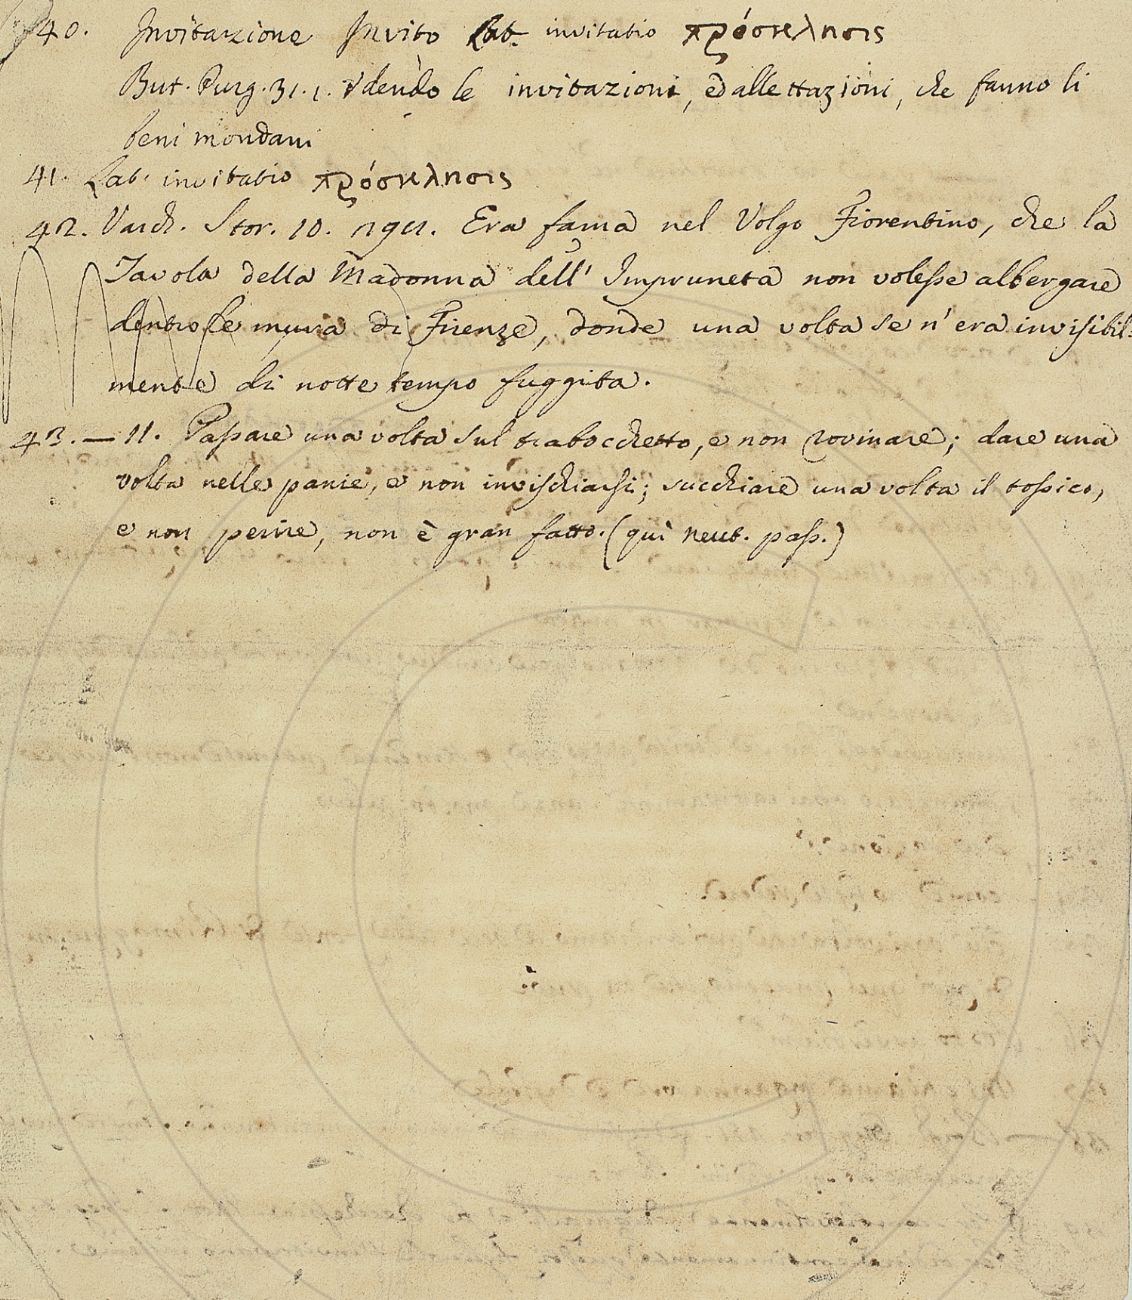 40. Invitazione Invito Lat. invitatio πρόσκλησις
But. Purg. 31. 1. Udendo le invitazioni, ed allettazioni, che fanno li
beni mondani
41. Lat. invitatio πρόσκλησις
42. Varch. Stor. 10. Era fama nel Volgo Fiorentino, che la
Tavola della Madonna dell' Impruneta non volesse albergare
dentro le mura di Firenze, donde una volta se n'era invisibil-
mente di notte tempo fuggita.
43. — 11. Passare una volta sul trabocchetto, e non rovinare; dare una
volta nelle panie, e non invischiarsi; succhiare una volta il tossico,
e non perire, non è gran fatto. (quì neut. pass.)